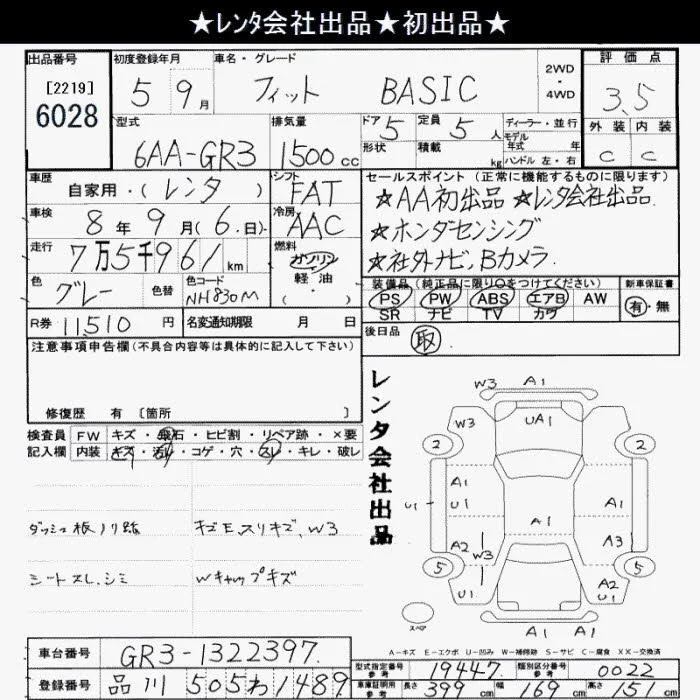 ★レンタ会社出品★初出品★
出品番号 初度登録年月 車名・グレード 2WD・4WD 評価点
[2219] 6028 5 9月 フィット BASIC 3.5
型式 排気量 ドア 5 定員 5人 ディーラー・並行 外装 内装
6AA-GR3 1500cc 形状 積載 kg モデル年式 年 C C
ハンドル 左・右
車歴 自家用・(レンタ) シフト FAT セールスポイント(正常に機能するものに限ります)
★AA初出品 ★レンタ会社出品.
車検 8年9月(6日) 冷房 AAC ★ホンダセンシング
走行 7万5千961km 燃料 ガソリン 軽油 ( ) ★社外ナビ,Bカメラ.
色 グレー 色替 色コード NH830M
装備品(純正品に限り○をつけてください) 新車保証書
PS PW ABS エアB AW 有・無
SR ナビ TV カワ
R券 11510円 名変通知期限 月 日 後日品 取
注意事項申告欄(不具合内容等は具体的に記入して下さい)
修復歴 有 〔箇所 〕
検査員 FW キズ・飛石・ヒビ割・リペア跡・×要
記入欄 内装 キズ・汚れ・コゲ・穴・スレ・キレ・破レ
ダッシュ板ノリ跡 キズE,スリキズ,W3
シートスレ,シミ Wキャップキズ
レンタ会社出品
W3 A1
W3 UA1
2 2
A1
U1 U1 A1
A1
A2 W3 A3
5 5
U1 A2 U1
A1 A1
スペア
A-キズ E-エクボ U-凹み W-補修跡 S-サビ C-腐食 XX-交換済
車台番号 GR3-1322397. 型式指定番号 参考 19447 類別区分番号 参考 0022
登録番号 品川 505わ1489 車庫証明用 参考 長さ 399cm 幅 169cm 高さ 151cm